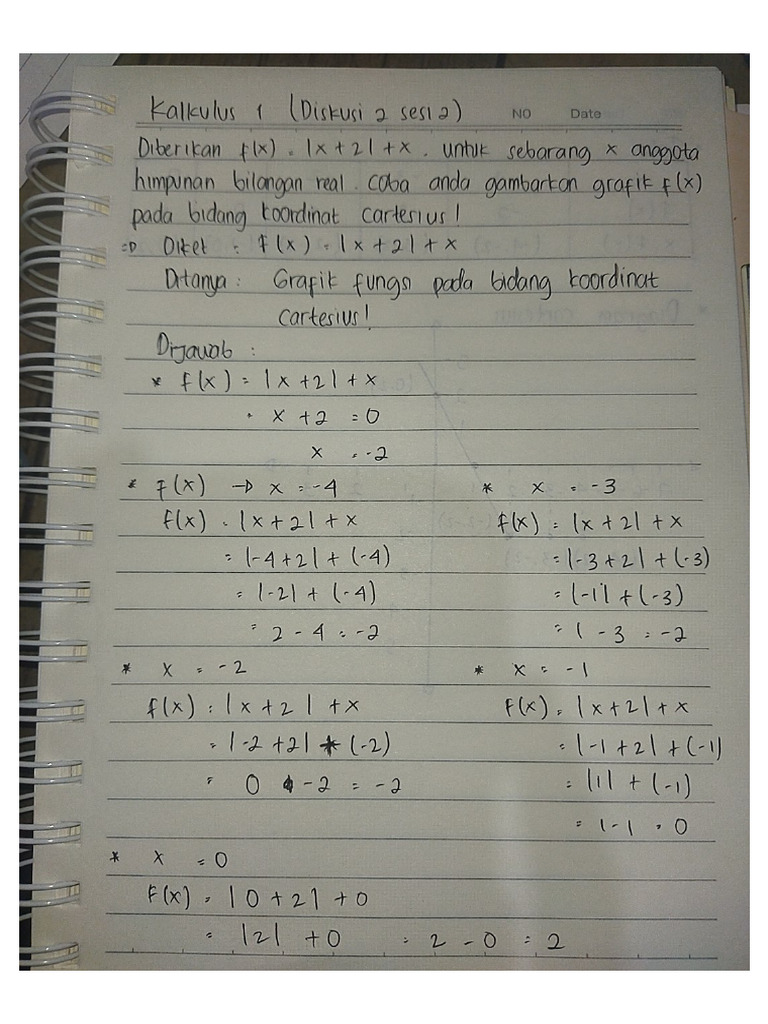 Kalkulus 1 (Diskusi 2 sesi 2) NO Date
Diberikan f(x) = |x + 2| + x . untuk sebarang x anggota
himpunan bilangan real. Coba anda gambarkan grafik f(x)
pada bidang koordinat cartesius!
=> Diket : f(x) = |x + 2| + x
Ditanya : Grafik fungsi pada bidang koordinat
cartesius!
Dijawab :
* f(x) = |x + 2| + x
• x + 2 = 0
x = -2
* f(x) → x = -4
f(x) = |x + 2| + x
= |-4 + 2| + (-4)
= |-2| + (-4)
= 2 - 4 = -2
* x = -3
f(x) = |x + 2| + x
= |-3 + 2| + (-3)
= |-1| + (-3)
= 1 - 3 = -2
* x = -2
f(x) = |x + 2| + x
= |-2 + 2| + (-2)
= 0 -2 = -2
* x = -1
f(x) = |x + 2| + x
= |-1 + 2| + (-1)
= |1| + (-1)
= 1 - 1 = 0
* x = 0
f(x) = |0 + 2| + 0
= |2| + 0 = 2 - 0 = 2